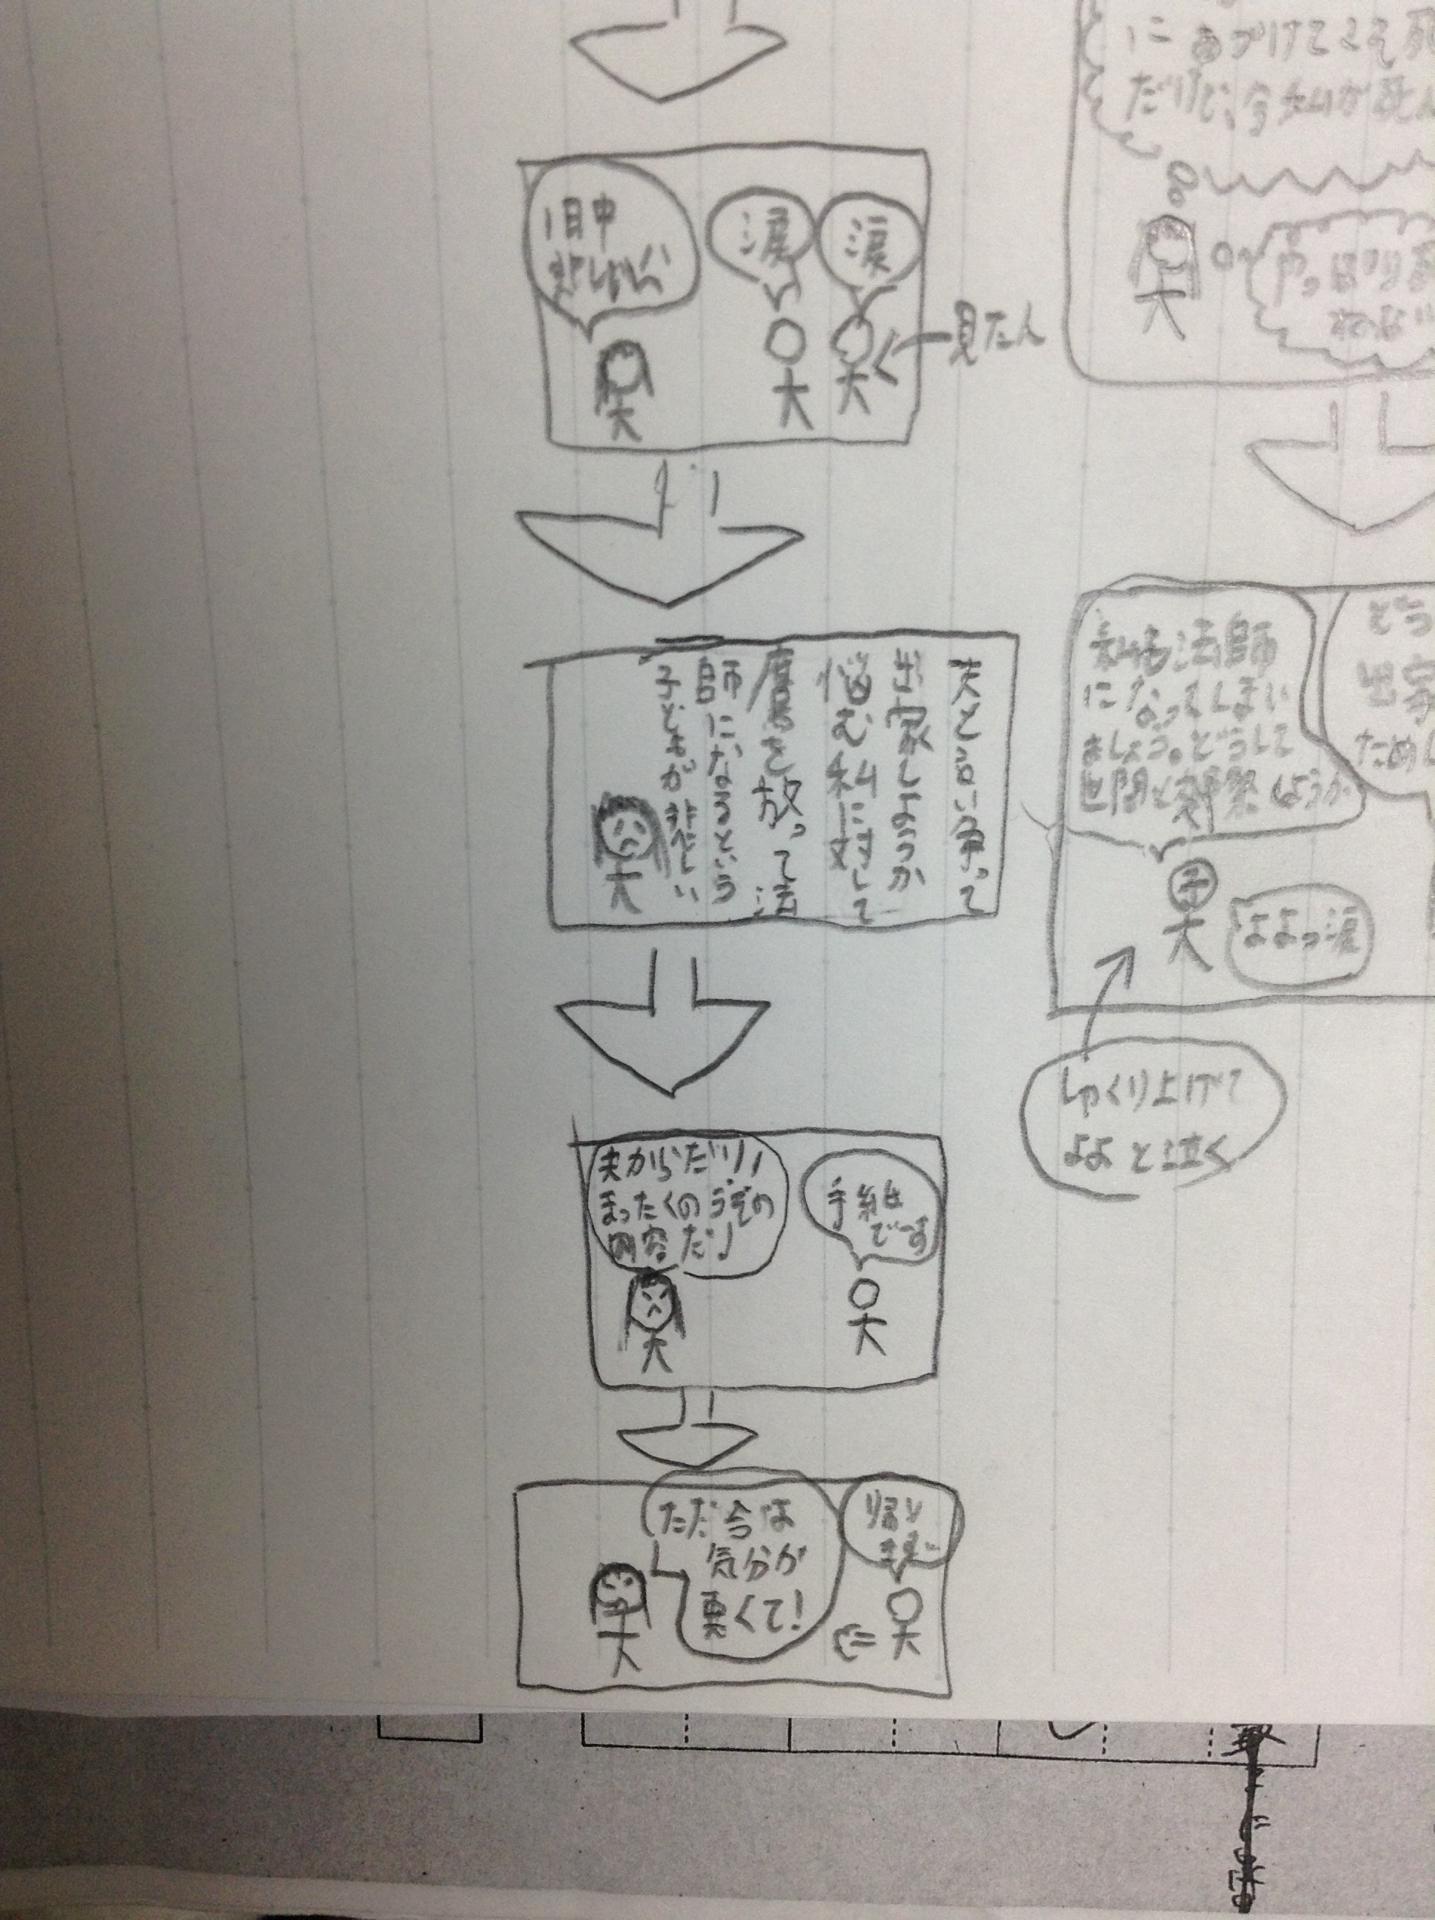 にあづけてこそ死
だけど、今私が死ん
やっぱり
私も法師
になってしまい
ましょう。どうして
世間と交際しようか
どう
出家
ため
よよっ涙
しゃくり上げて
よよと泣く
涙
涙
1日中
悲しい
見た人
夫と言い争って
出家しようか
悩む私に対して
鷹を放って法
師になるという
子どもが悲しい
手紙
です
夫からだ!!
まったくのうその
内容だ!
帰り
ました
ただ今は
気分が
悪くて!